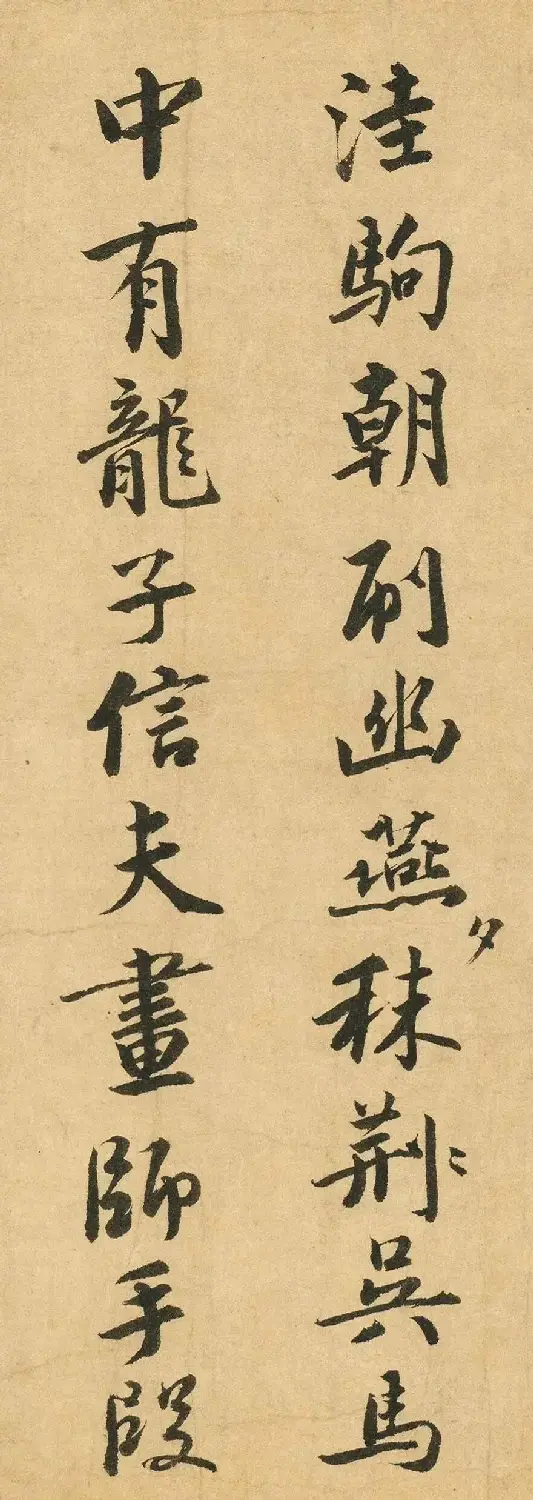 洼駒朝刷幽燕夕秣荆吳馬
中有龍子信夫畫師手段